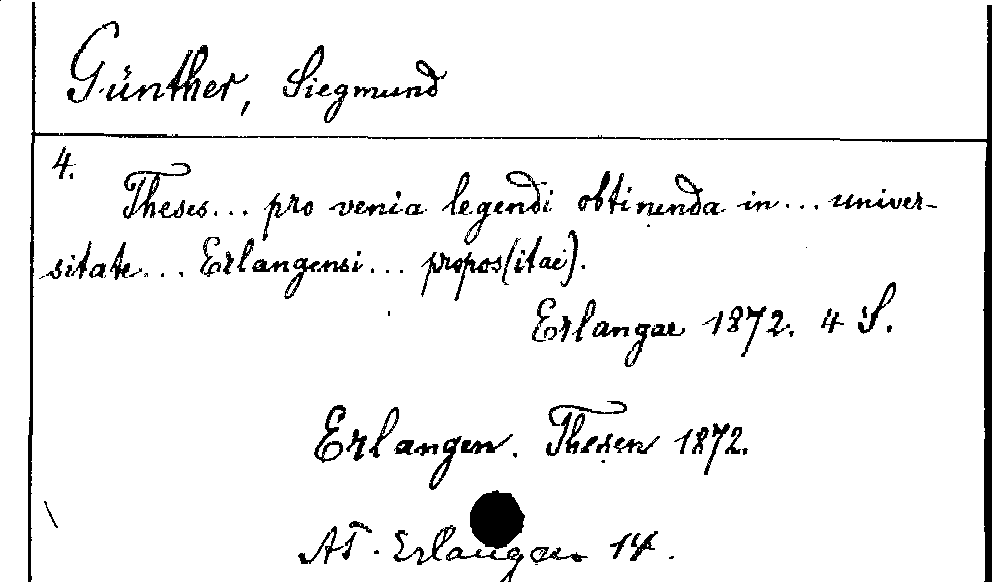 Günther, Siegmund
4.
Theses... pro venia legendi obtinenda in... univer-
sitate... Erlangensi... propos(itae).
Erlangae 1872. 4 S.
Erlangen. Thesen 1872.
AT. Erlangen 14.